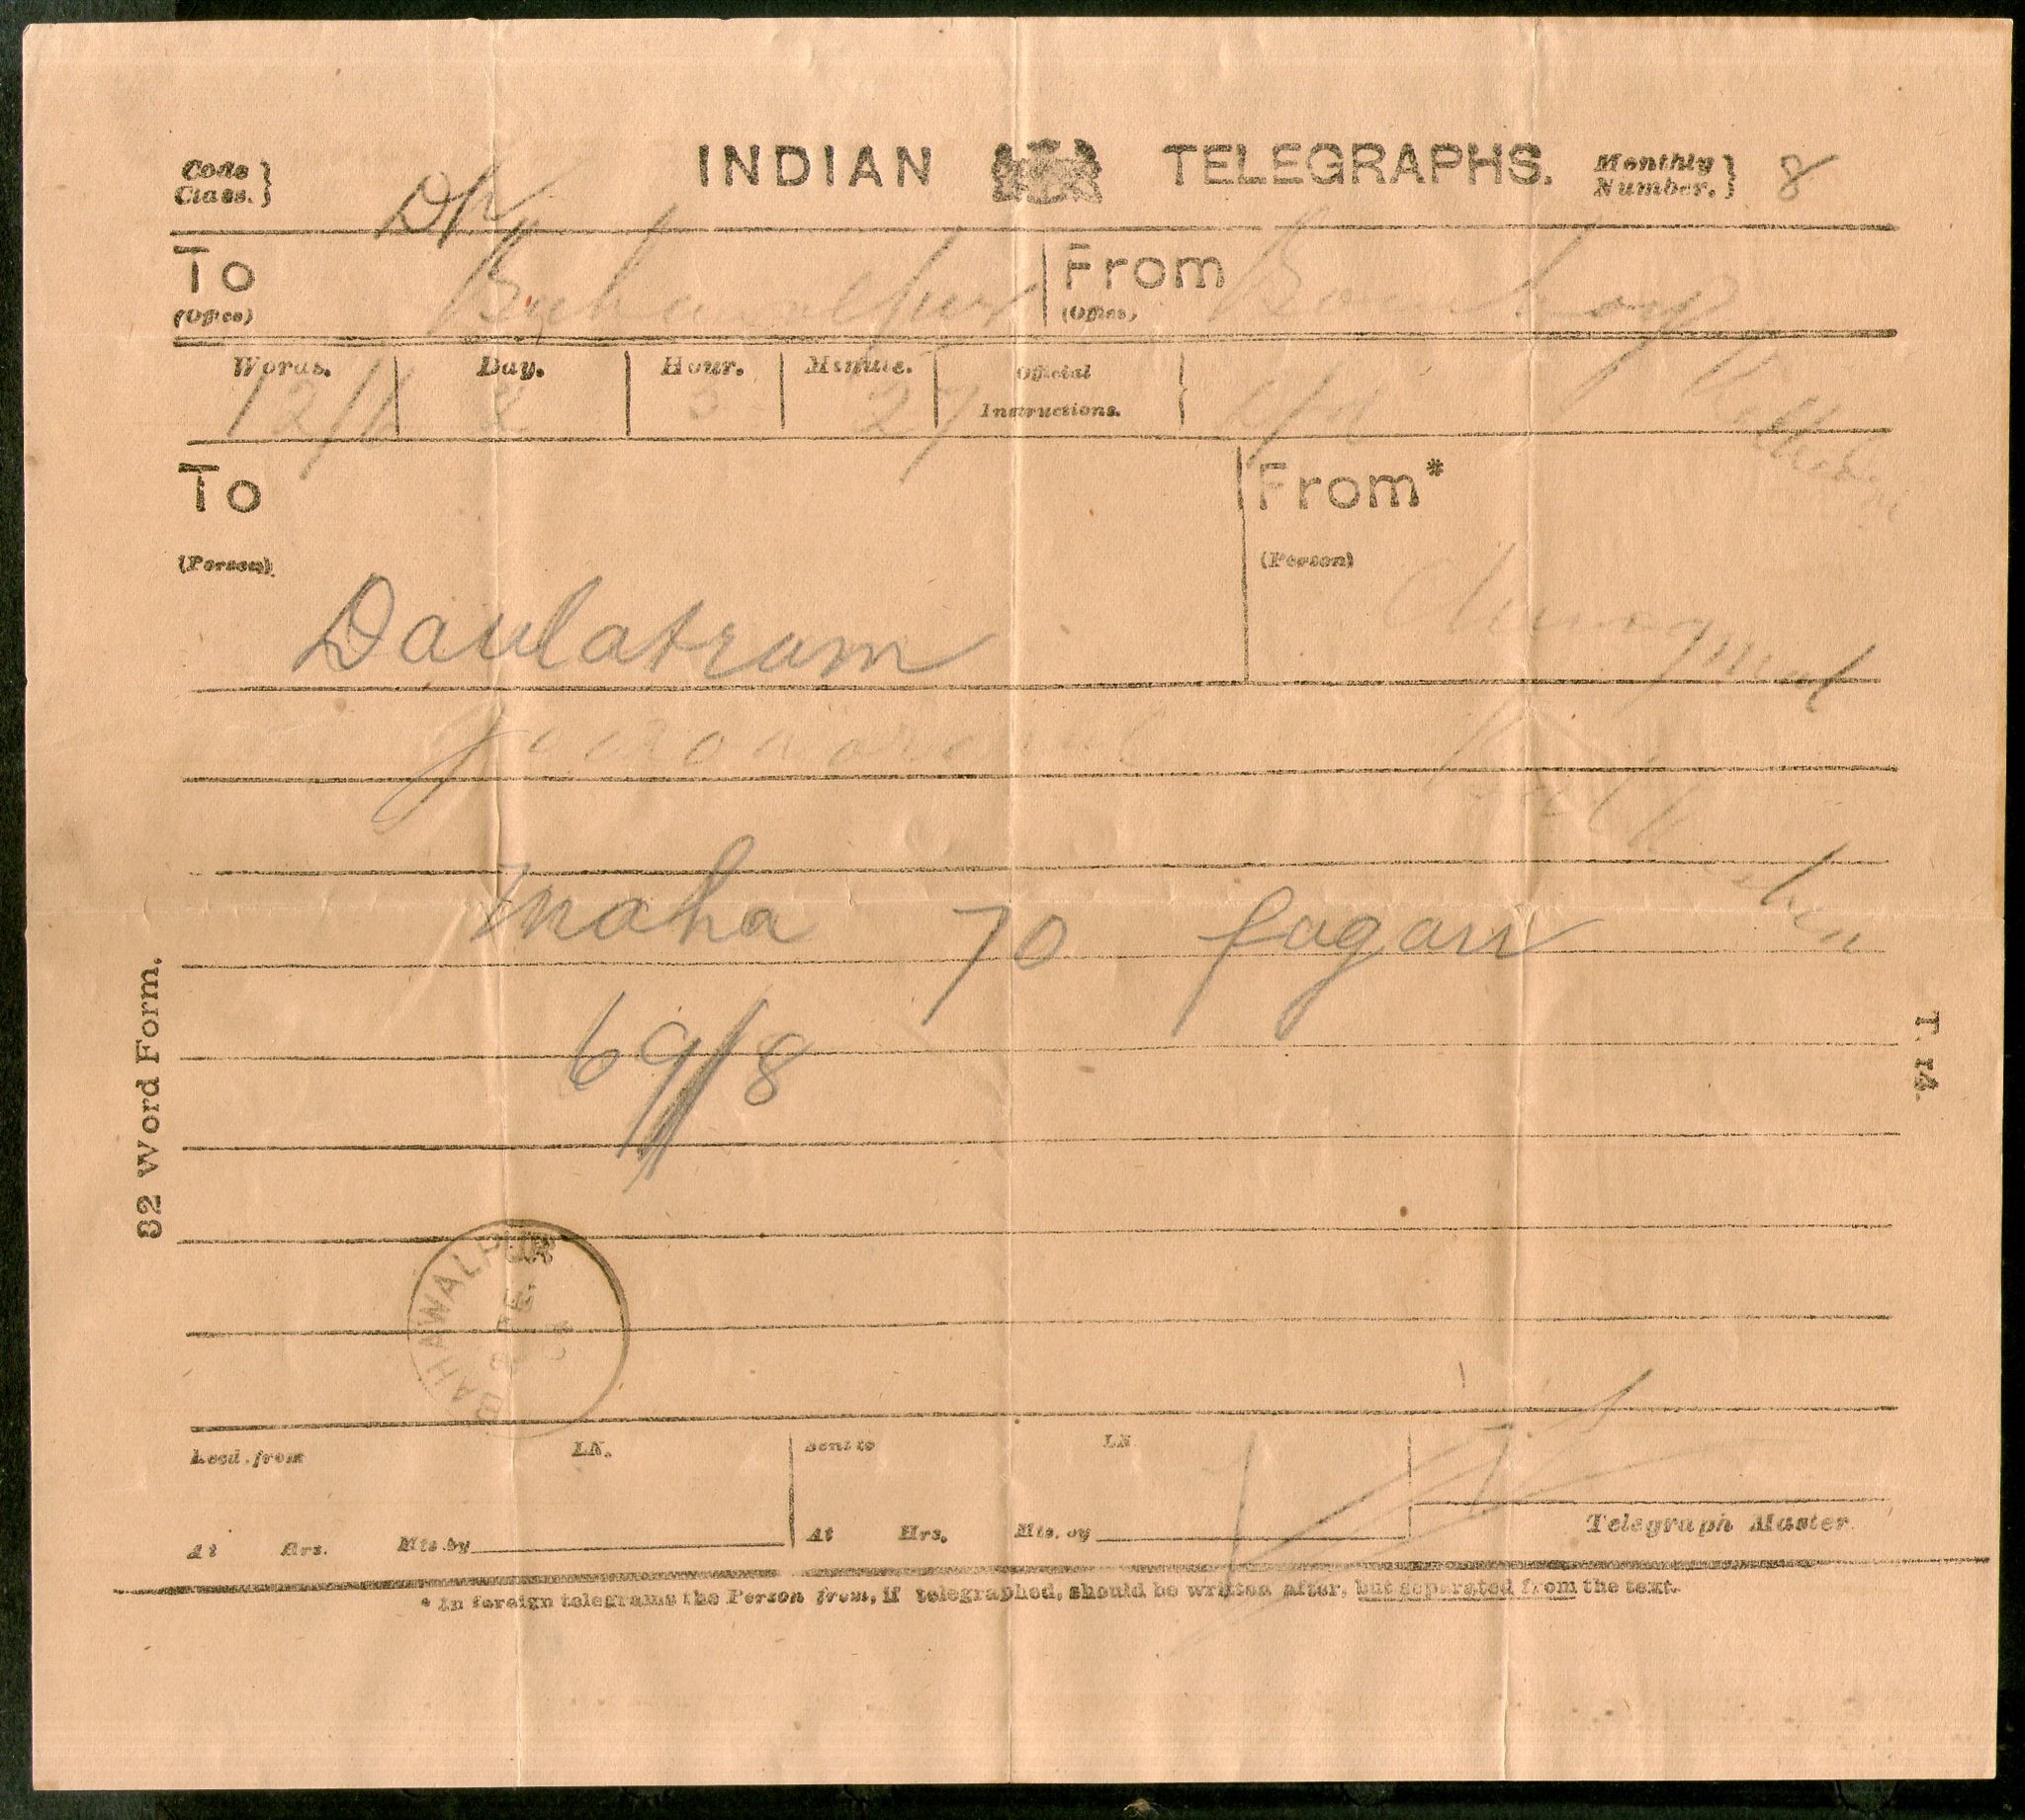 Code Class. } Dh INDIAN TELEGRAPHS. Monthly Number. } 8
To (Office) Bahawalpur From (Office) Bombay
Words. Day. Hour. Minute. Official Instructions. }
12/11 2 27
To From*
(Person) (Person)
Daulatram
maha 70 fagan
69/8
32 Word Form.
T. 14.
BAHAWALPUR
Recd. from LN. Sent to LN
At Hrs. Mts. by At Hrs. Mts. by Telegraph Master
* In foreign telegrams the Person from, if telegraphed, should be written after, but separated from the text.